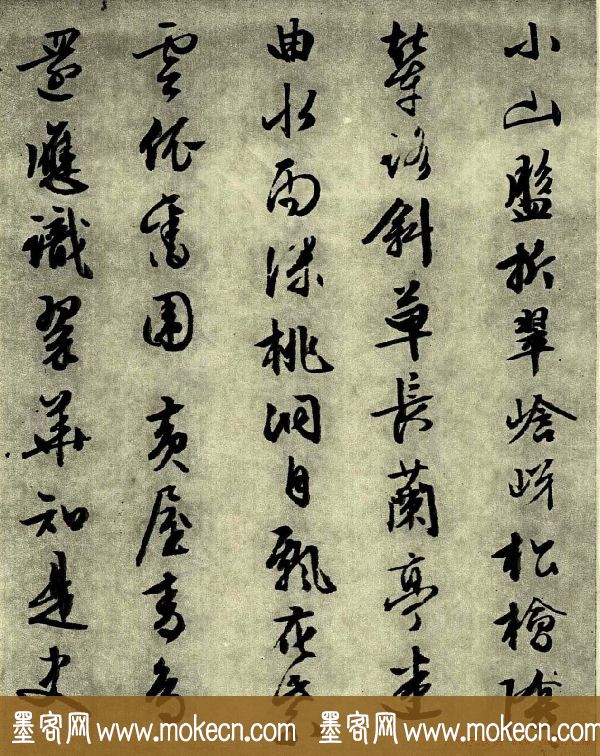 小山盤折翠岈松檜陰
輦路斜草長蘭亭迷
曲水雨深桃洞自飄花
雲依舊圍黃屋青鳥
還應識翠華知是史
墨客网 www.mokecn.com 墨客网 www.mokecn.com